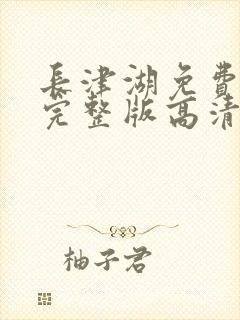 長津湖免費
完整版高清
柚子君